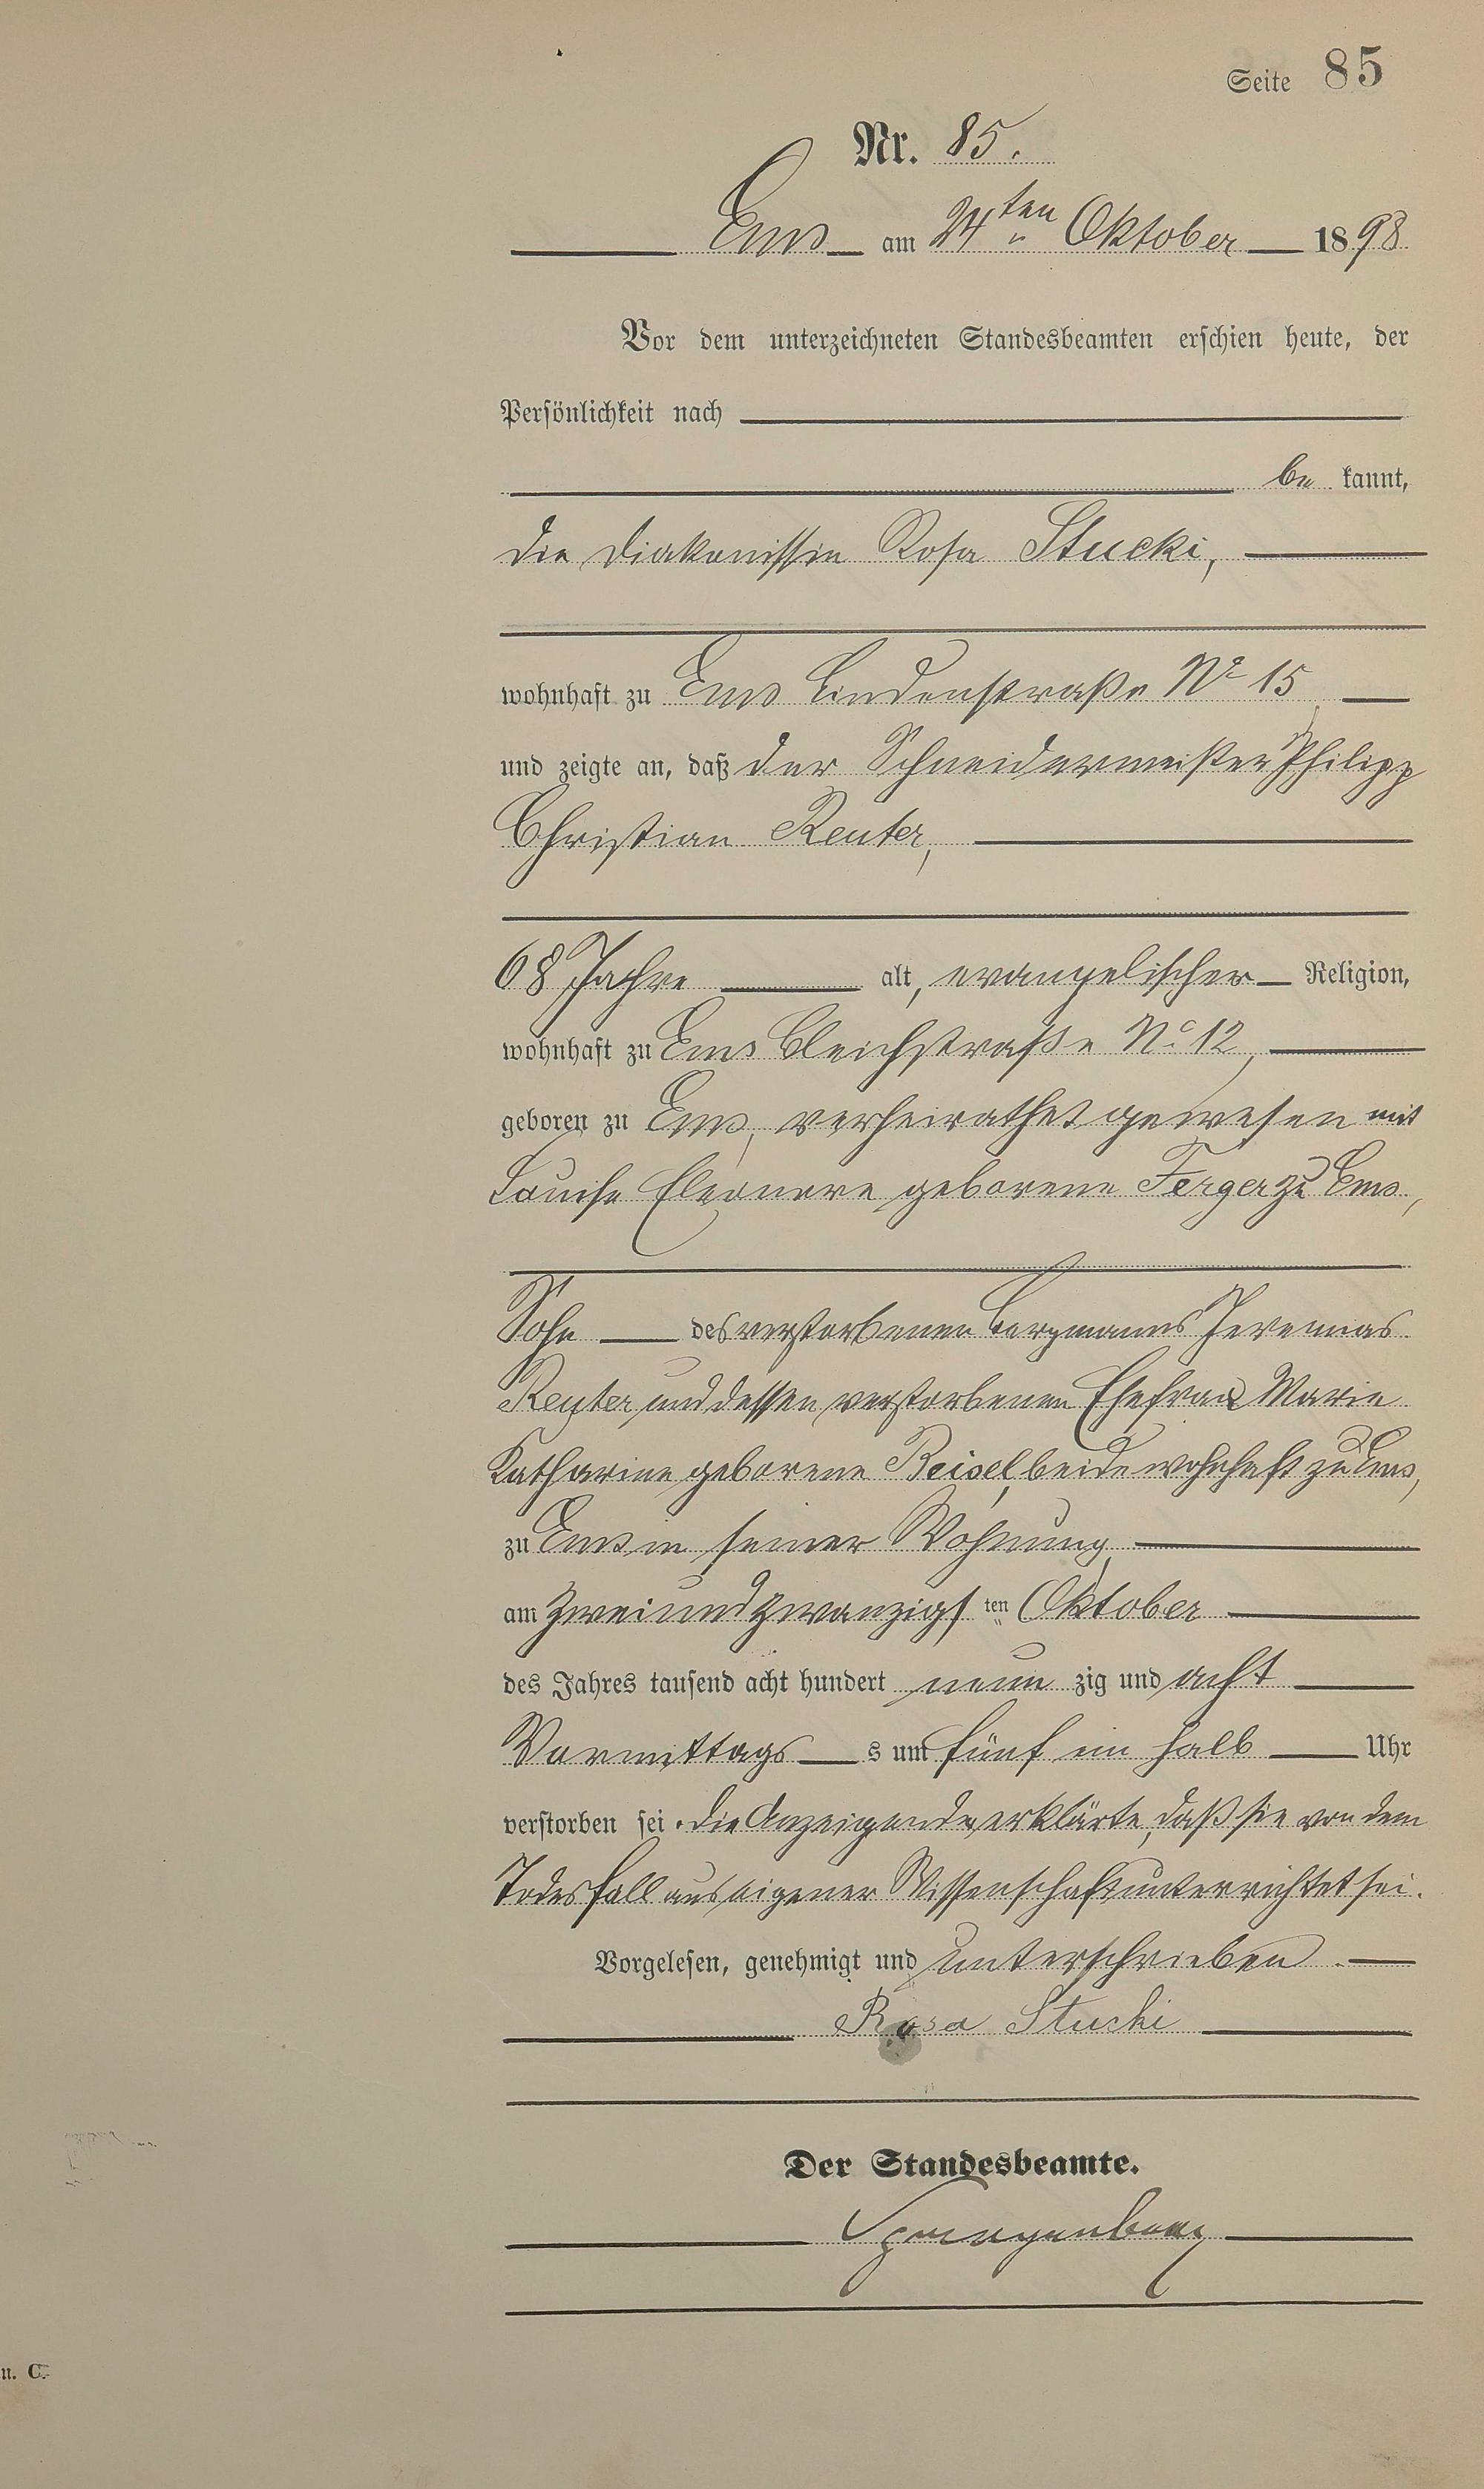 Seite 85
Nr. 85.
Ems am 24ten Oktober 1898
Vor dem unterzeichneten Standesbeamten erschien heute, der
Persönlichkeit nach
be kannt,
die Diakonissin Rosa Stucki,
wohnhaft zu Ems Lindenstraße No 15
und zeigte an, daß der Schneidermeister Philipp
Christian Reuter,
68 Jahre alt, evangelischer Religion,
wohnhaft zu Ems Bleichstraße No 12,
geboren zu Ems, verheirathet gewesen mit
Louise Eleonore geborene Ferger zu Ems,
Sohn des verstorbenen Bergmanns Jeremias
Reuter und dessen verstorbenen Ehefrau Marie
Katharine geborene Beisel, beide wohnhaft zu Ems,
zu Ems in seiner Wohnung,
am zweiundzwanzigsten Oktober
des Jahres tausend acht hundert neun zig und acht
Vormittags s um fünf ein halb Uhr
verstorben sei. Die Anzeigende erklärte, daß sie von dem
Todesfall aus eigener Wissenschaft unterrichtet sei.
Vorgelesen, genehmigt und unterschrieben
Rosa Stucki
Der Standesbeamte.
u. C.